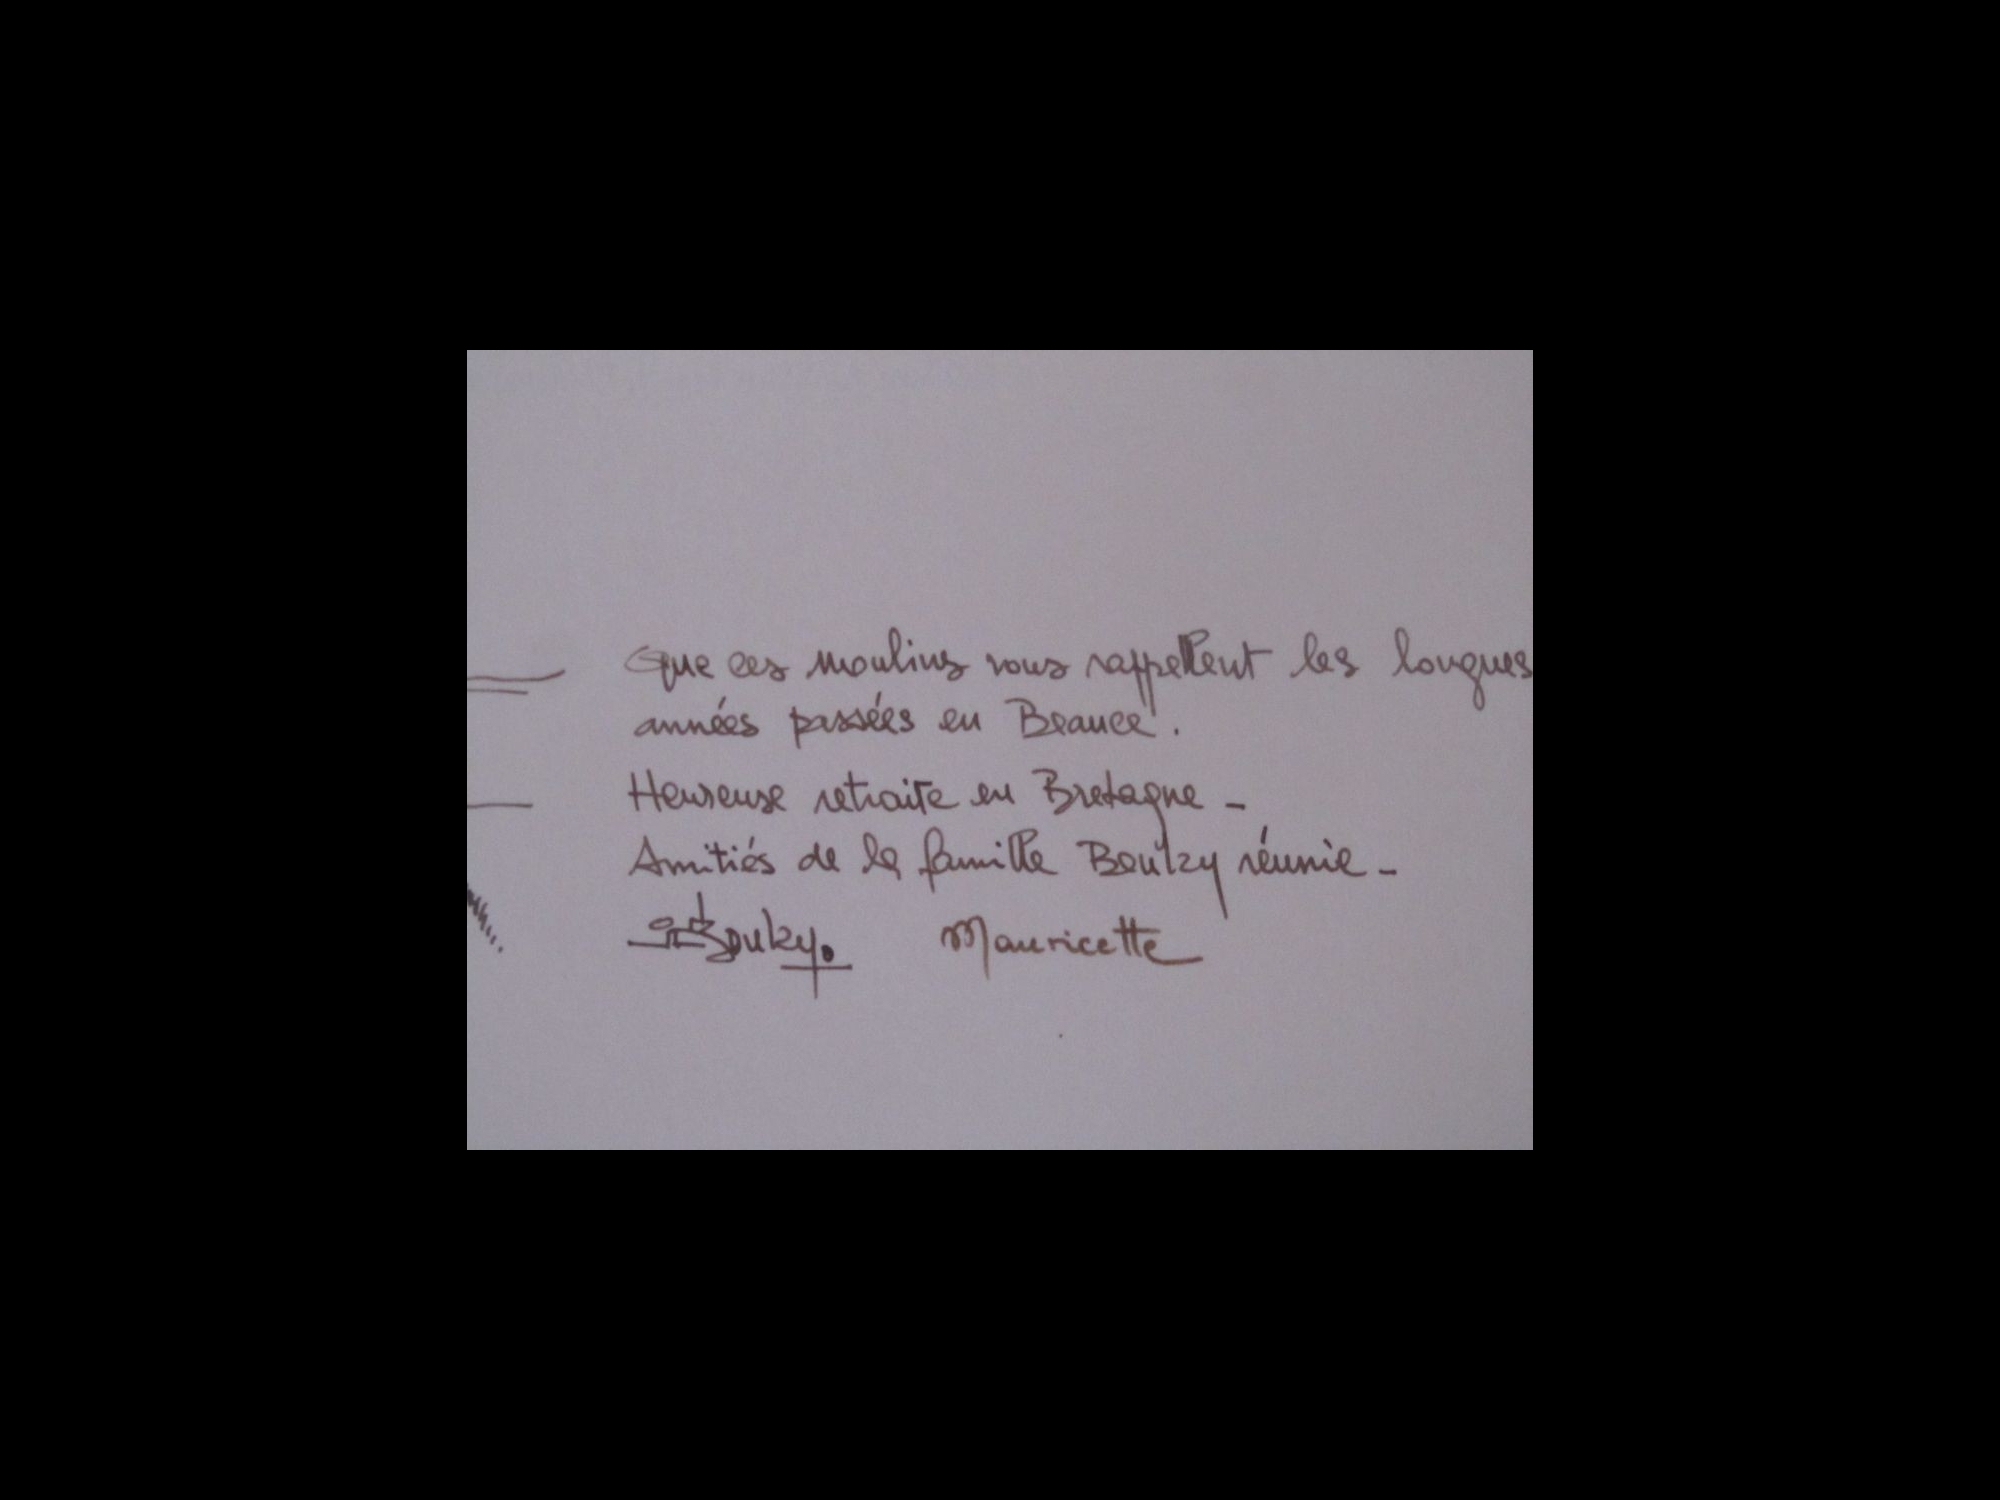 Que ces moulins vous rappellent les longues
années passées en Beauce.
Heureuse retraite en Bretagne -
Amitiés de la famille Boulzy réunie -
Boulzy. Mauricette